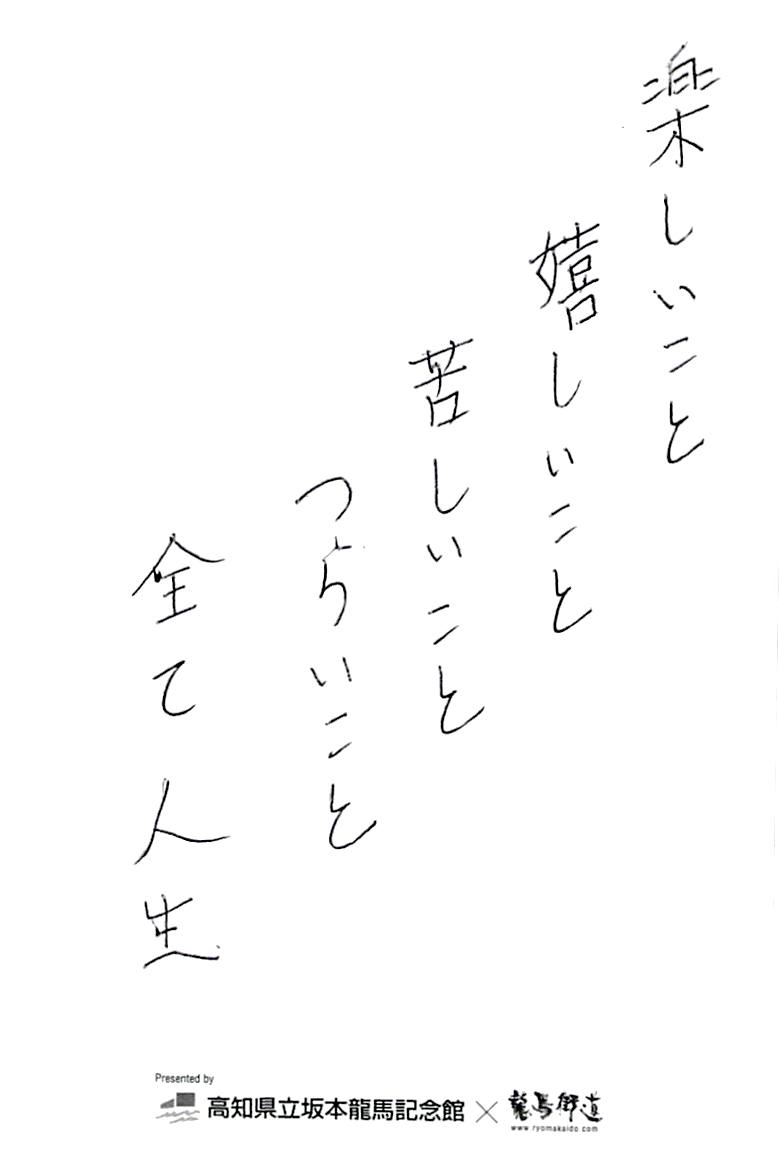 楽しいこと
嬉しいこと
苦しいこと
つらいこと
全て人生
Presented by
高知県立坂本龍馬記念館×龍馬街道
www.ryomakaido.com